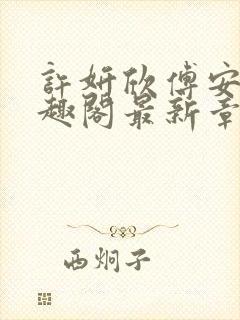 許妍欣傅安
趣閣最新章
西炯子